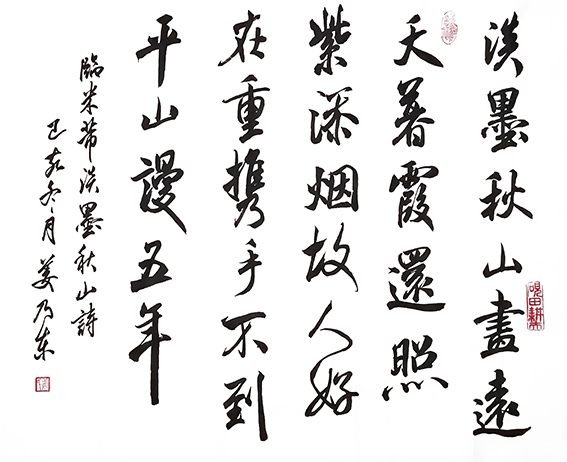 淡墨秋山畫遠
天暮霞還照
紫添烟故人好
在重携手不到
平山謾五年
臨米芾淡墨秋山詩
己亥冬月姜乃东